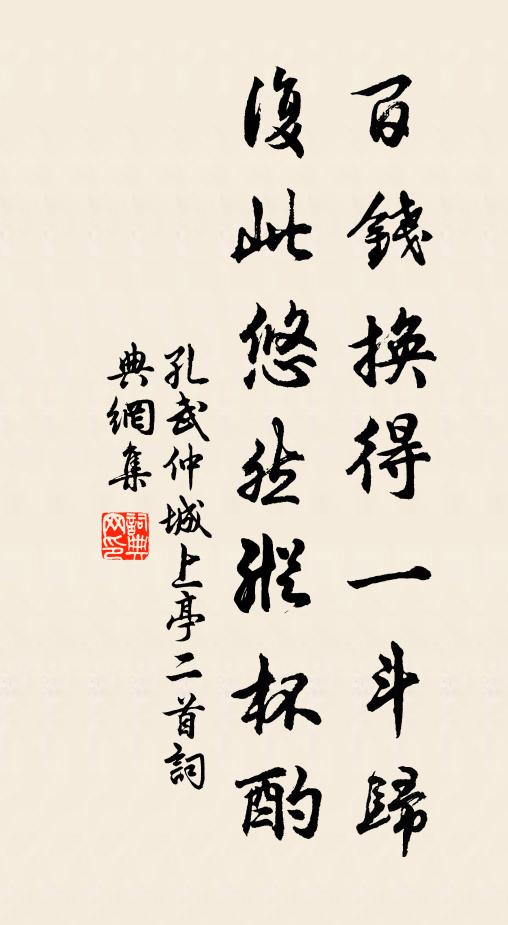 百錢換得一斗歸
復此悠然縱杯酌
孔武仲城上亭二首詞
典網集
詞典網印